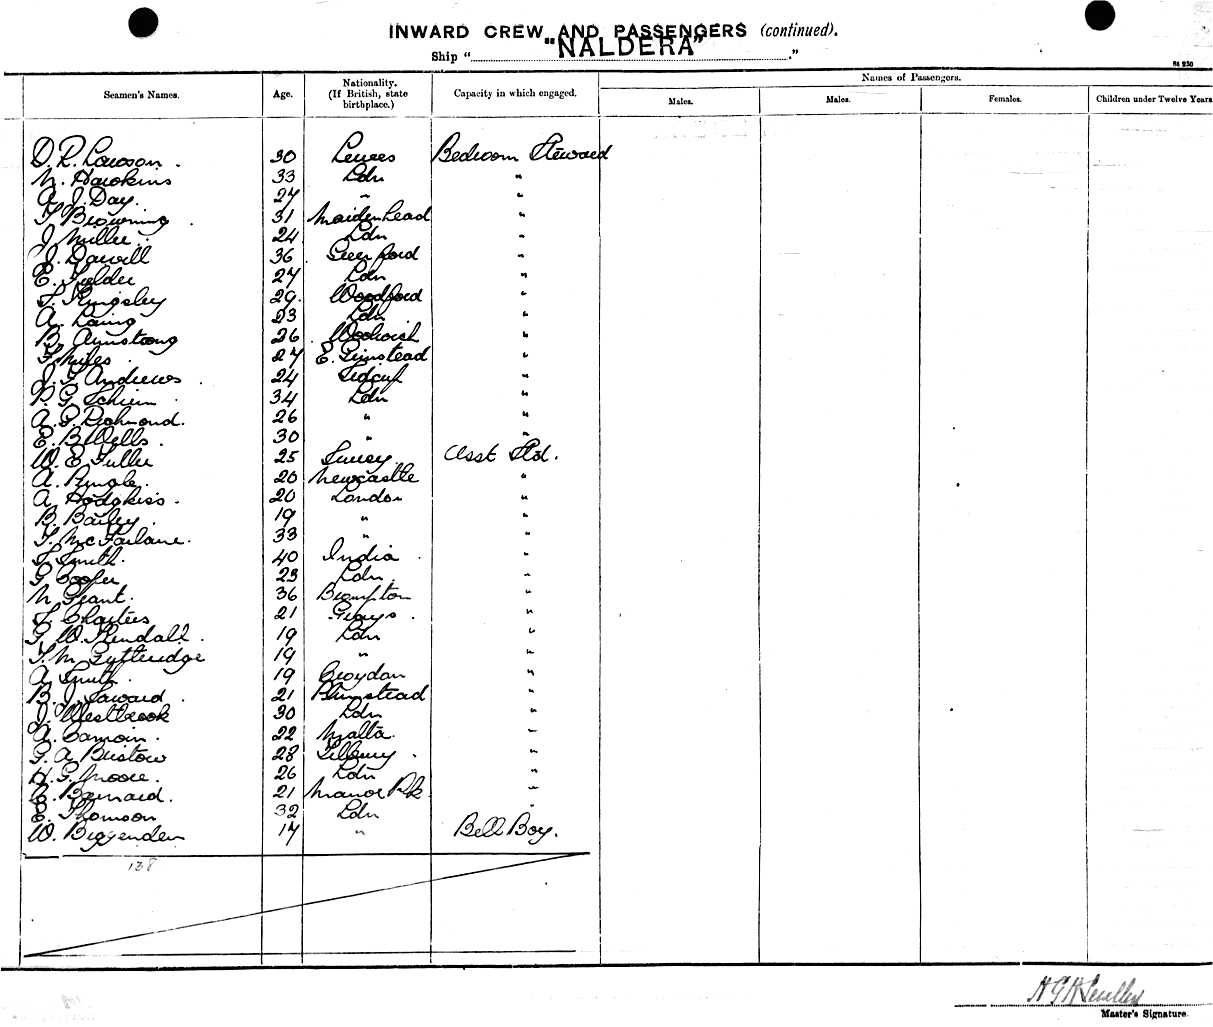 INWARD CREW AND PASSENGERS (continued).
Ship "NALDERA"."
Seamen's Names. Age. Nationality. (If British, state birthplace.) Capacity in which engaged. Names of Passengers.
Males. Males. Females. Children under Twelve Years
D. R. Lawson. 30 Bedroom Steward
N. Hawkins 33 Ldn "
A. J. Day. 27 " "
T. Browning. 31 Maidenhead "
J. Miller. 24 Ldn "
J. Dowell 36 "
E. Fielder 27 Ldn "
F. Kingsley 29. Woodford "
A. Laing 23 Ldn "
B. Armstrong 26 Woolwich "
F. Miles. 27 E. Grinstead "
J. G. Andrews. 24 Sidcup "
P. G. 34 Ldn "
A. P. Richmond. 26 " "
E. B. Wells. 30 " "
W. E. Fuller 25 Surrey Asst Std.
A. Pringle. 20 Newcastle "
A. Hodgkiss. 20 London "
B. Bailey. 19 " "
T. McFarlane. 33 " "
F. Smith. 40 India. "
G. Cooper 23 Ldn. "
N. Grant. 36 Brompton "
F. Charters 21 Grays. "
G. W. Kendall. 19 Ldn "
T. M. Gutteridge 19 " "
A. Smith. 19 Croydon "
B. J. Saward. 21 Plumstead "
J. Westbrook 30 Ldn "
A. Camoin. 22 Malta. "
G. A. Bristow 28 Tilbury. "
H. G. Moore. 26 Ldn "
E. Barnard. 21 Manor Pk "
E. Thomson 32 Ldn "
W. Biggenden 17 " Bell Boy.
138
Master's Signature.